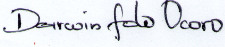 Darwin fdo Osoro